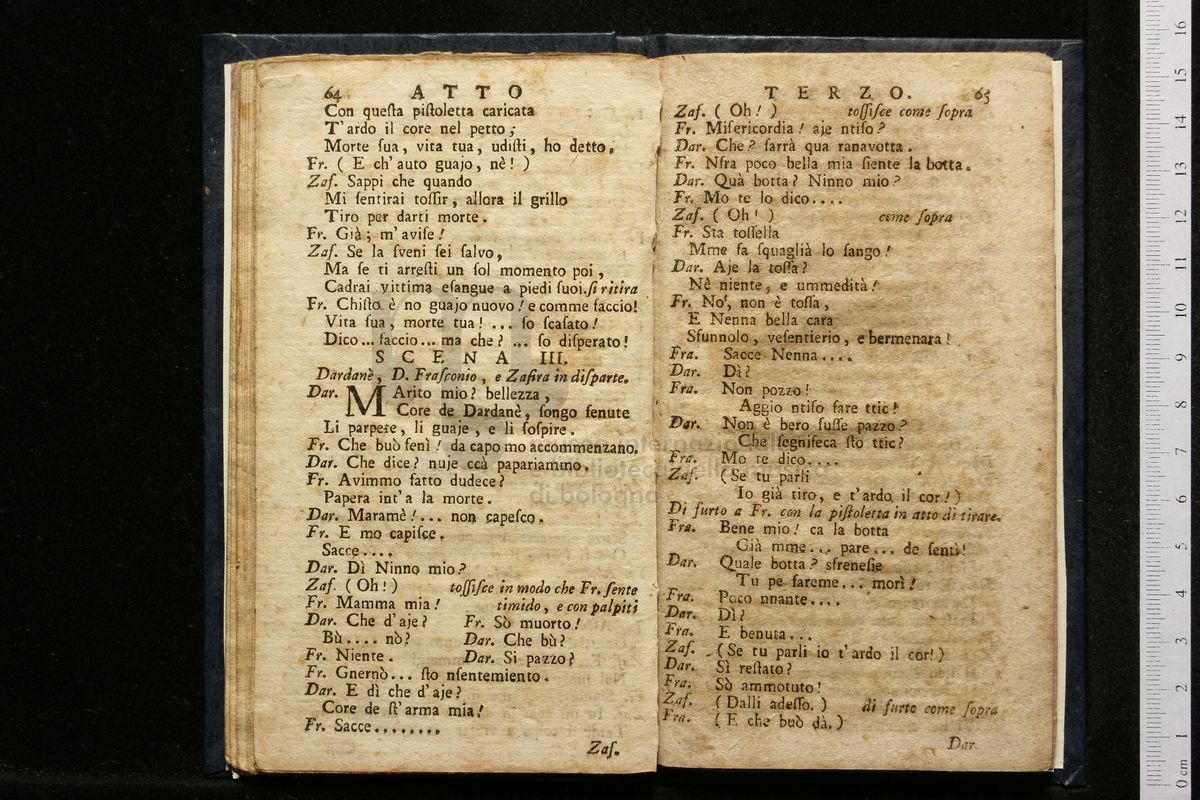 64 ATTO
Con queſta piſtoletta caricata
T'ardo il core nel petto;
Morte ſua, vita tua, udiſti, ho detto.
Fr. ( E ch'auto guajo, nè! )
Zaf. Sappi che quando
Mi ſentirai toſſir, allora il grillo
Tiro per darti morte.
Fr. Già; m'aviſe!
Zaf. Se la ſveni ſei ſalvo,
Ma ſe ti arreſti un ſol momento poi,
Cadrai vittima eſangue a piedi ſuoi. ſi ritira
Fr. Chiſto è no guajo nuovo! e comme faccio!
Vita ſua, morte tua! ... ſo ſcaſato!
Dico... faccio... ma che? ... ſo diſperato!
SCENA III.
Dardanè, D. Fraſconio, e Zafira in diſparte.
Dar. MArito mio? bellezza,
Core de Dardanè, ſongo fenute
Li parpete, li guaje, e li ſoſpire.
Fr. Che buò fenì! da capo mo accommenzano.
Dar. Che dice? nuje ccà papariammo.
Fr. Avimmo fatto dudece?
Papera int'a la morte.
Dar. Maramè!... non capeſco.
Fr. E mo capiſce.
Sacce....
Dar. Dì Ninno mio?
Zaf. (Oh!) toſſiſce in modo che Fr. ſente
Fr. Mamma mia! timido, e con palpiti
Dar. Che d'aje? Fr. Sò muorto!
Bù.... nò? Dar. Che bù?
Fr. Niente. Dar. Si pazzo?
Fr. Gnernò... ſto nſentemiento.
Dar. E dì che d'aje?
Core de ſt'arma mia!
Fr. Sacce........
Zaf.
TERZO. 65
Zaf. ( Oh! ) toſſiſce come ſopra
Fr. Miſericordia! aje ntiſo?
Dar. Che? ſarrà qua ranavotta.
Fr. Nfra poco bella mia ſiente la botta.
Dar. Quà botta? Ninno mio?
Fr. Mo te lo dico....
Zaf. ( Oh! ) come ſopra
Fr. Sta toſſella
Mme fa ſquaglià lo ſango!
Dar. Aje la toſſa?
Nè niente, e ummedità!
Fr. No, non è toſſa,
E Nenna bella cara
Sfunnolo, veſentierio, e bermenara!
Fra. Sacce Nenna....
Dar. Dì?
Fra. Non pozzo!
Aggio ntiſo fare ttic!
Dar. Non è bero fuſſe pazzo?
Che ſegnifeca ſto ttic?
Fra. Mo te dico....
Zaf. (Se tu parli
Io già tiro, e t'ardo il cor!)
Di furto a Fr. con la piſtoletta in atto di tirare.
Fra. Bene mio! ca la botta
Già mme... pare... de ſentì!
Dar. Quale botta? sfreneſie
Tu pe fareme... morì!
Fra. Poco nnante....
Dar. Dì?
Fra. E benuta...
Zaf. (Se tu parli io t'ardo il cor!)
Dar. Sì reſtato?
Fra. Sò ammotuto!
Zaf. (Dalli adeſſo.) di furto come ſopra
Fra. (E che buò dà.)
Dar.